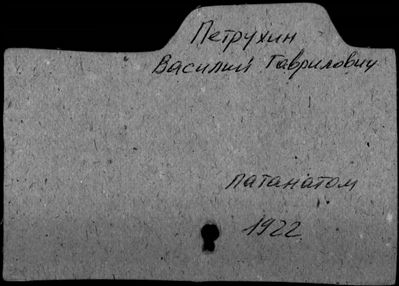 Петрухин
Василий Гаврилович
патанатом
1922